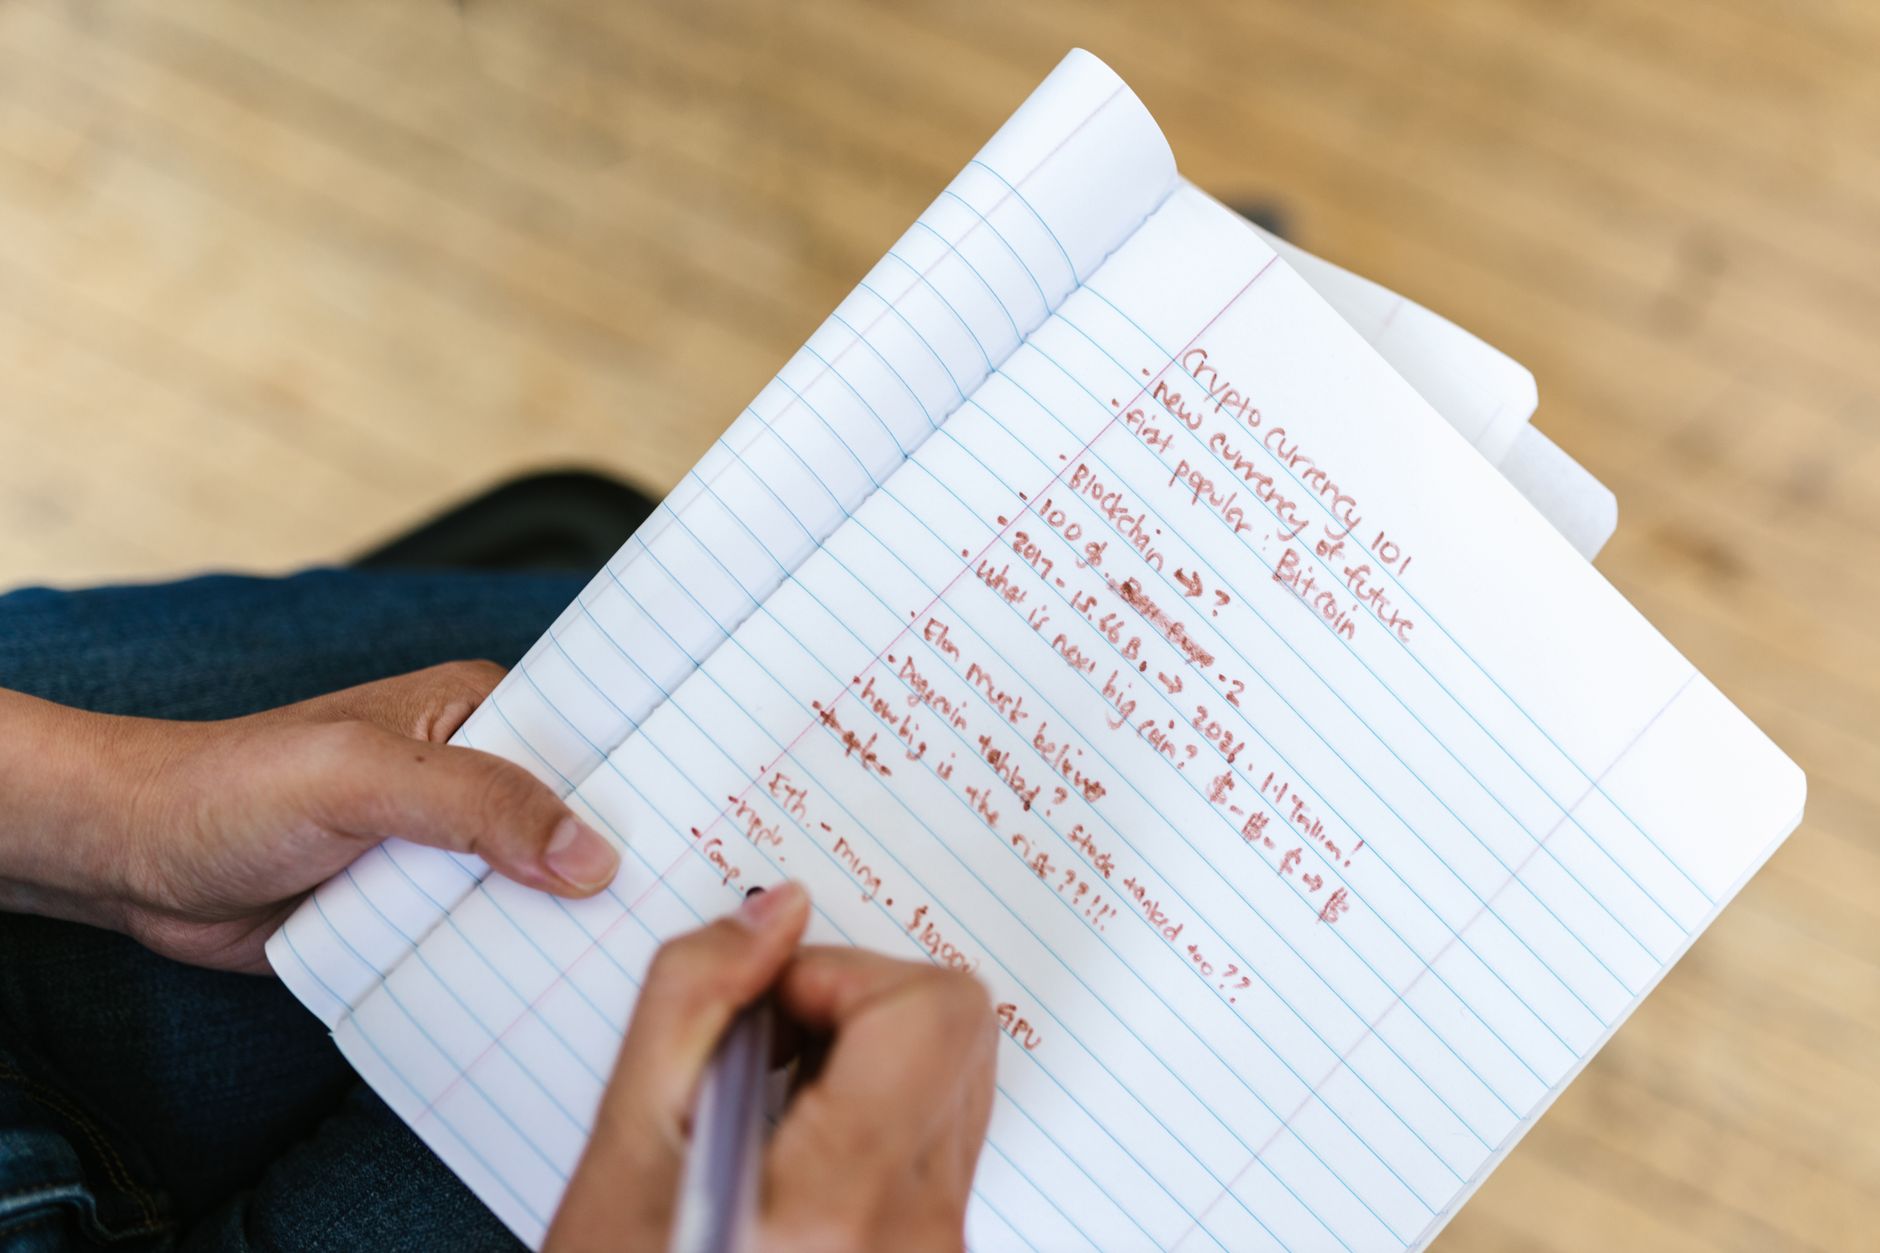 Crypto Currency 101
- new currency of future
- First popular : Bitcoin
- Blockchain → ?
- 100 $. - 2
- 2017 - 15.66 B. → 2021. 1.1 Trillion!
- What is next big coin? $ - $ - $ → $
- Elon musk believe
- Dogecoin tanked? stock tanked too??
- how big is the risk??!!!
- Eth. - ming. $10,000 GPU
- ripple.
- Comp.